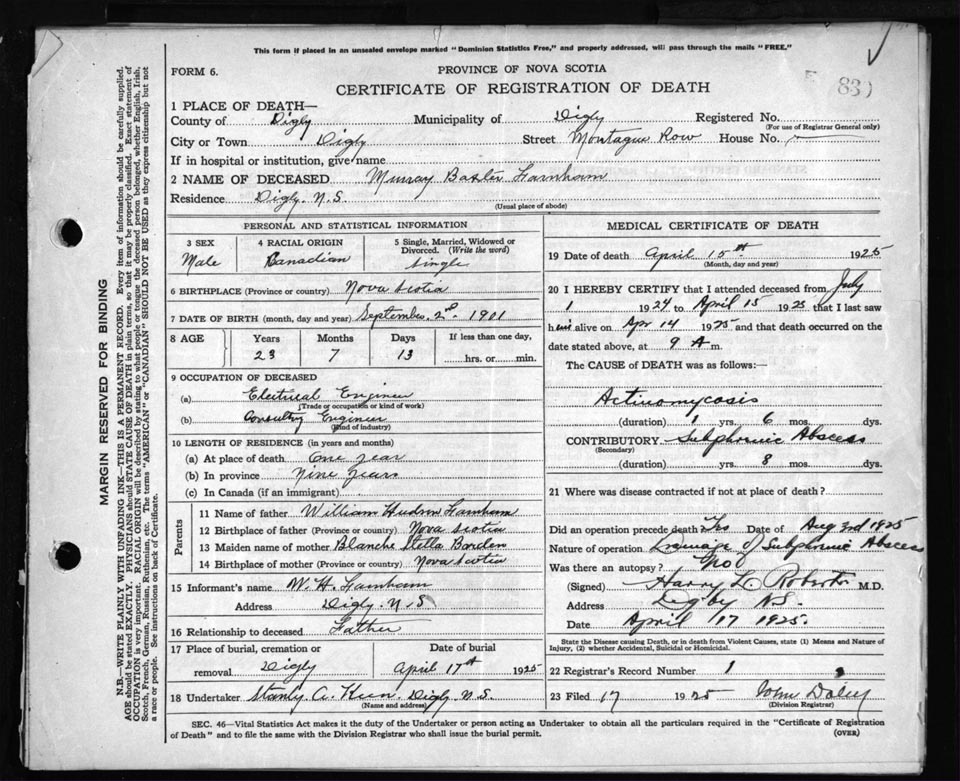 This form if placed in an unsealed envelope marked "Dominion Statistics Free," and properly addressed, will pass through the mails "FREE."
FORM 6.
PROVINCE OF NOVA SCOTIA
CERTIFICATE OF REGISTRATION OF DEATH
83
1 PLACE OF DEATH—
County of Digby Municipality of Digby Registered No.
(For use of Registrar General only)
City or Town Digby Street Montague Row House No.
If in hospital or institution, give name
2 NAME OF DECEASED Murray Baxter Farnham
Residence Digby. N.S.
(Usual place of abode)
PERSONAL AND STATISTICAL INFORMATION
3 SEX
Male
4 RACIAL ORIGIN
Canadian
5 Single, Married, Widowed or Divorced. (Write the word)
Single
6 BIRTHPLACE (Province or country) Nova Scotia
7 DATE OF BIRTH (month, day and year) September 2nd 1901
8 AGE Years Months Days If less than one day,
23 7 13 hrs. or min.
9 OCCUPATION OF DECEASED
(a) Electrical Engineer
(Trade or occupation or kind of work)
(b) Consulting Engineer
(Kind of industry)
10 LENGTH OF RESIDENCE (in years and months)
(a) At place of death One year
(b) In province Nine years
(c) In Canada (if an immigrant)
Parents
11 Name of father William Hudson Farnham
12 Birthplace of father (Province or country) Nova Scotia
13 Maiden name of mother Blanche Stella Borden
14 Birthplace of mother (Province or country) Nova Scotia
15 Informant's name W. H. Farnham
Address Digby. N.S
16 Relationship to deceased Father
17 Place of burial, cremation or removal Digby Date of burial April 17th 1925
18 Undertaker Stanly A. Digby N.S.
(Name and address)
MEDICAL CERTIFICATE OF DEATH
19 Date of death April 15th 1925
(Month, day and year)
20 I HEREBY CERTIFY that I attended deceased from July
1 1924 to April 15 1925 that I last saw
him alive on Apr 14 1925 and that death occurred on
date stated above, at 9 A m.
The CAUSE of DEATH was as follows:—
Actinomycosis
(duration) 1 yrs. 6 mos. dys.
CONTRIBUTORY Subphrenic Abscess
(Secondary)
(duration) yrs. 8 mos. dys.
21 Where was disease contracted if not at place of death?
Did an operation precede death? Yes Date of Aug 3rd 1925
Nature of operation Drainage of Subphrenic Abscess
Was there an autopsy? No
(Signed) Harry L. Roberts M.D.
Address Digby N.S.
Date April 17 1925.
State the Disease causing Death, or in death from Violent Causes, state (1) Means and Nature of Injury, (2) whether Accidental, Suicidal or Homicidal.
22 Registrar's Record Number 1
23 Filed 17 1925 John Daley
(Division Registrar)
SEC. 46—Vital Statistics Act makes it the duty of the Undertaker or person acting as Undertaker to obtain all the particulars required in the "Certificate of Registration
of Death" and to file the same with the Division Registrar who shall issue the burial permit.
(OVER)
MARGIN RESERVED FOR BINDING
N.B.—WRITE PLAINLY WITH UNFADING INK—THIS IS A PERMANENT RECORD. Every item of information should be carefully supplied.
AGE should be stated EXACTLY. PHYSICIANS should STATE CAUSE OF DEATH in plain terms, so that it may be properly classified. Exact statement of
OCCUPATION is very important. RACIAL ORIGIN will be described by stating to what people or tongue the deceased person belonged, whether English, Irish,
Scotch, French, German, Russian, Ruthenian, etc. The terms "AMERICAN" or "CANADIAN" SHOULD NOT BE USED as they express citizenship but not
a race or people. See instructions on back of Certificate.